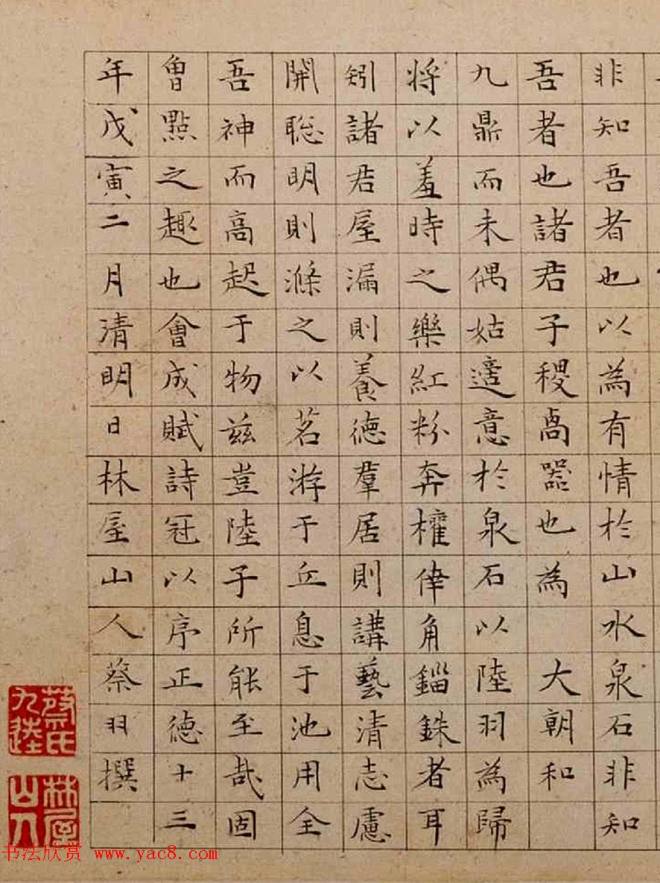 非知吾者也以為有情於山水泉石非知
吾者也諸君子稷卨器也為大朝和
九鼎而未偶姑適意於泉石以陸羽為歸
将以羞時之樂紅粉奔權倖角錙銖者耳
矧諸君屋漏則養徳羣居則講藝清志慮
開聡明則滌之以茗游于丘息于池用全
吾神而高起于物兹豈陸子所能至哉固
曾點之趣也會成賦詩冠以序正德十三
年戊寅二月清明日林屋山人蔡羽撰
蔡氏九逵
林屋山人
书法欣赏 www.yac8.com